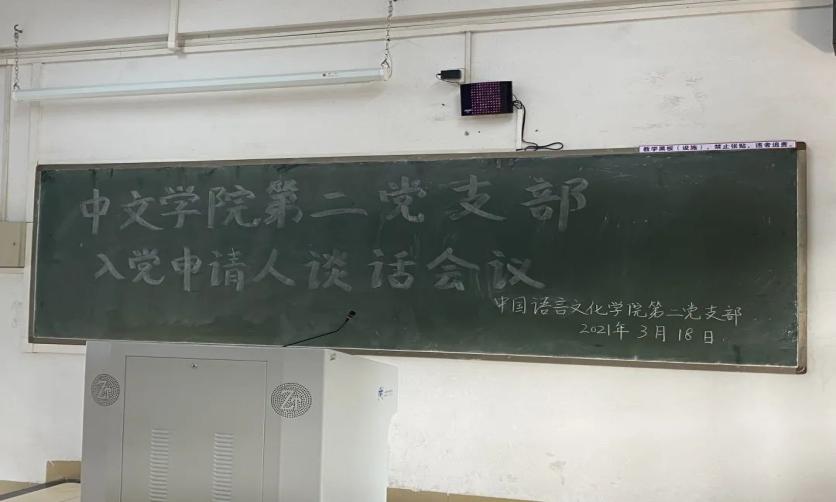 教学黑板（设施），禁止张贴，违者追责。
中文学院第二党支部
入党申请人谈话会议
中国语言文化学院第二党支部
2021年3月18日